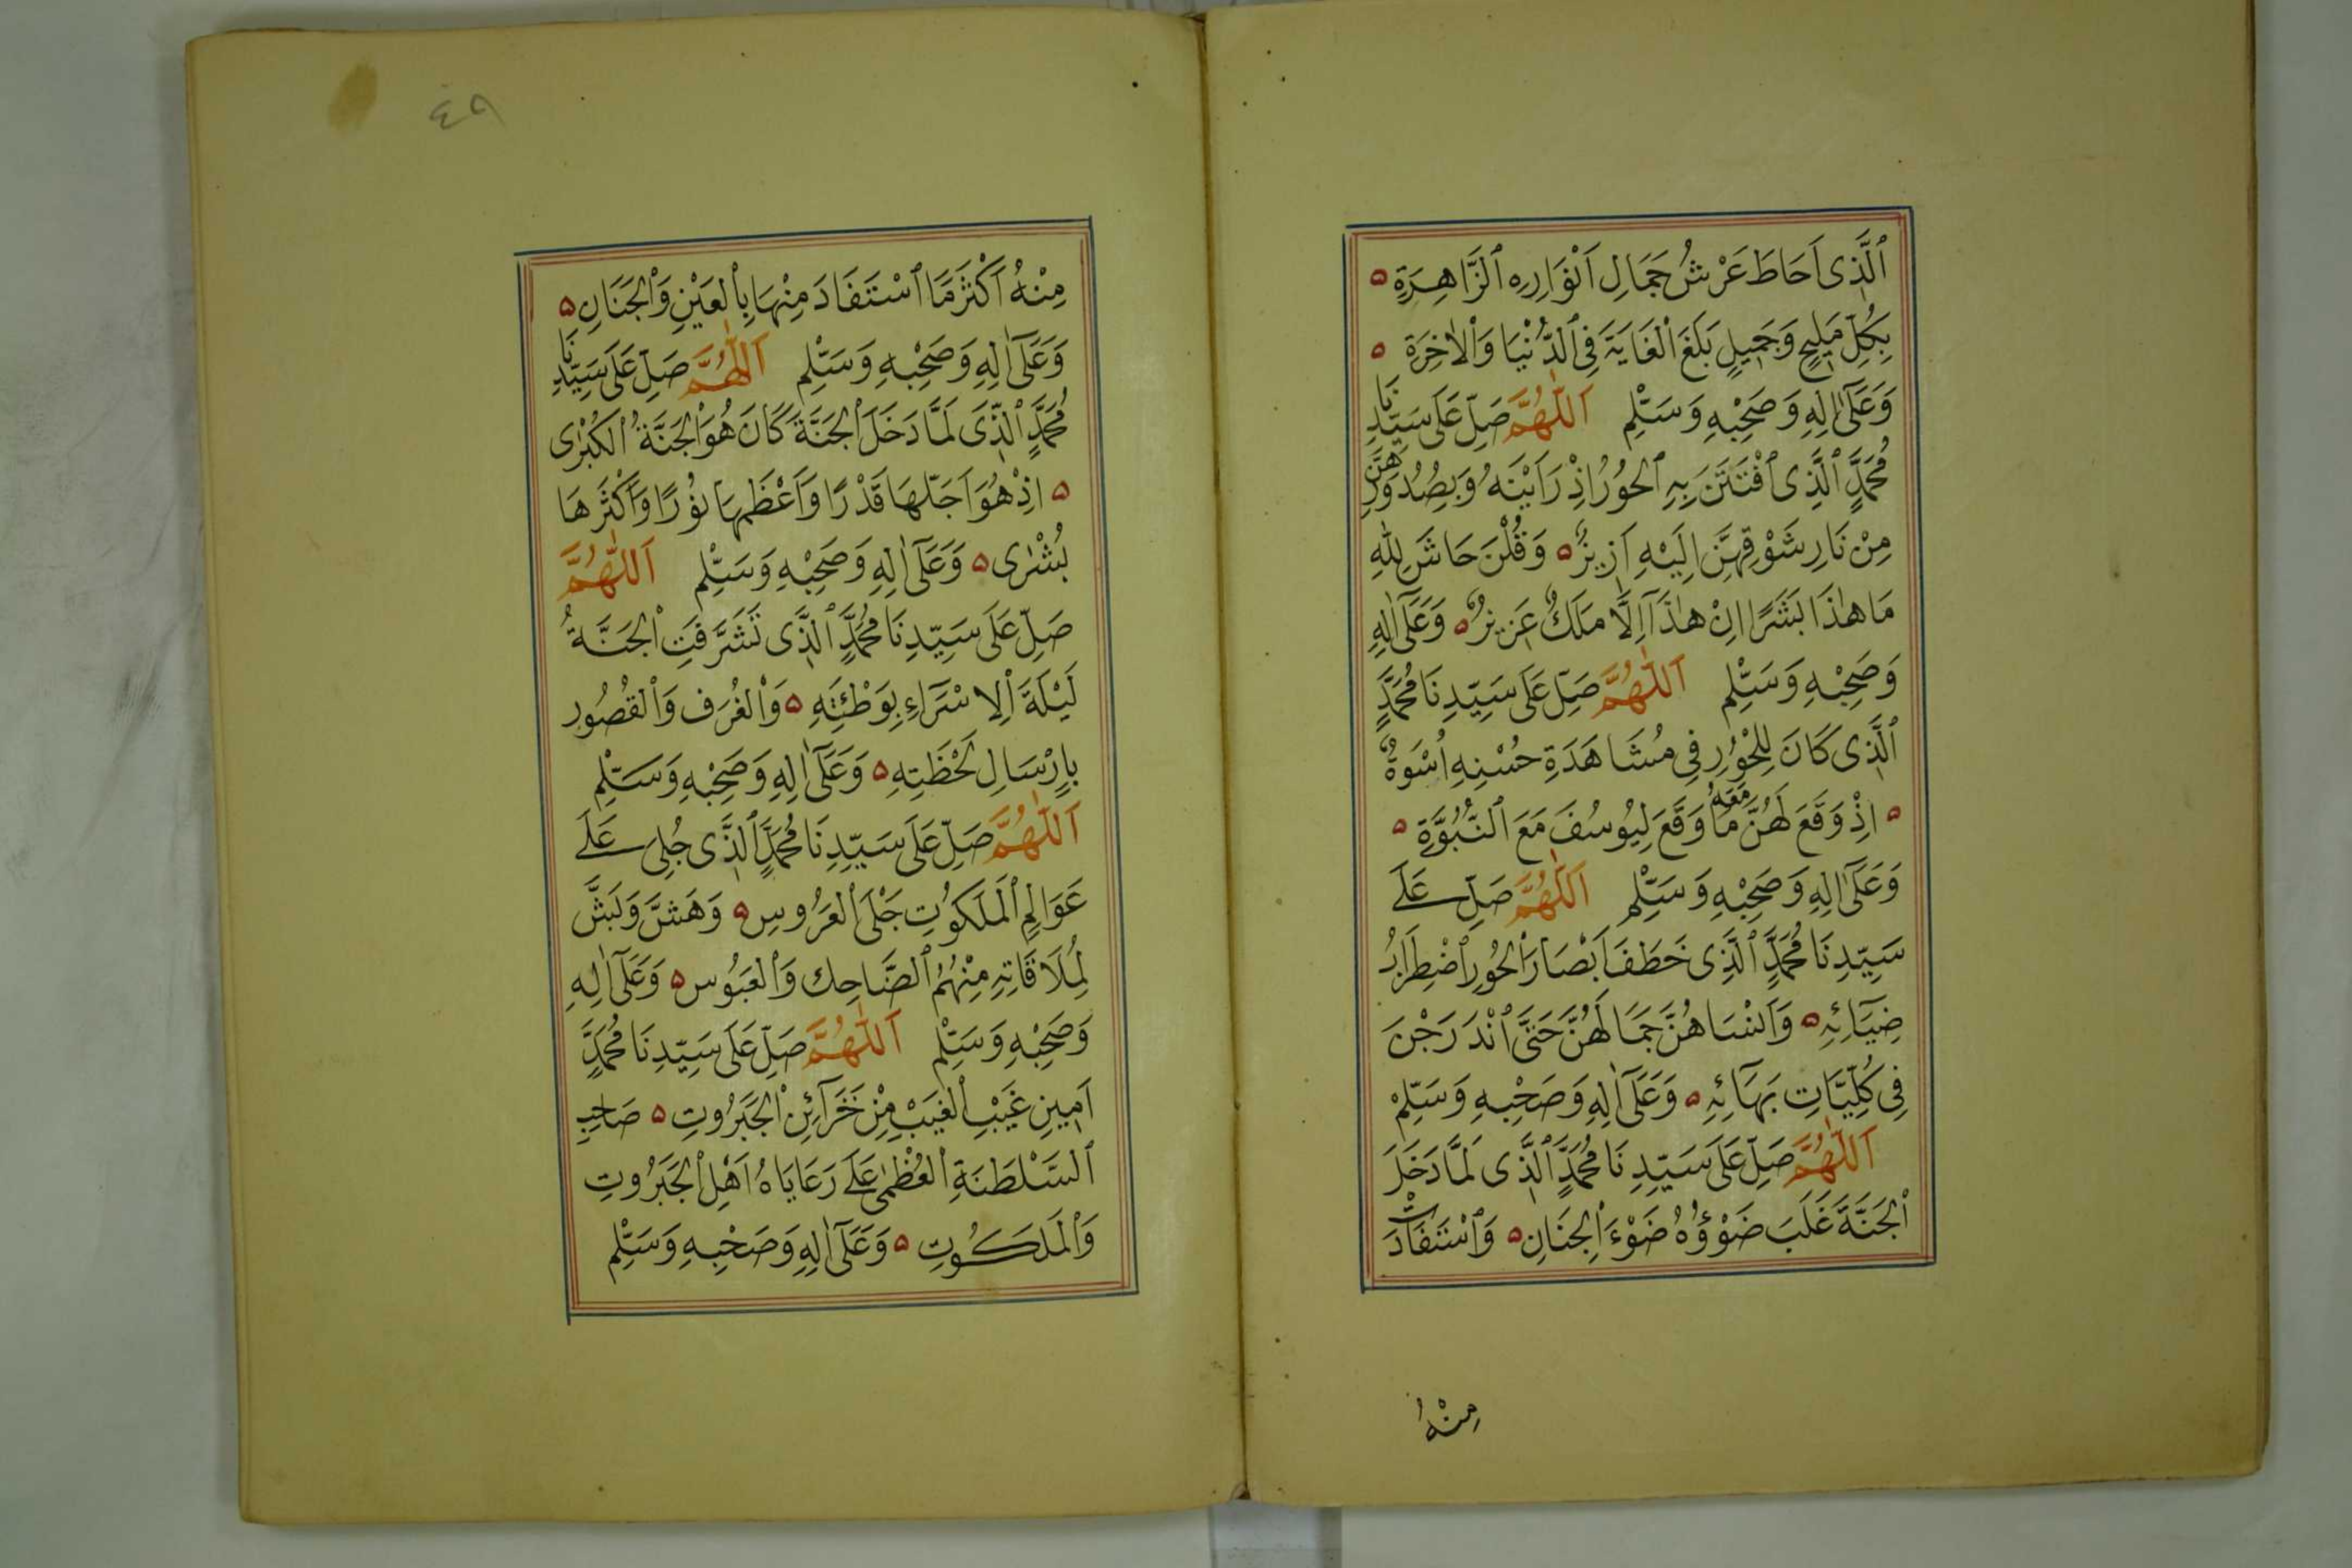 ٱلَّذِى اَحَاطَ عَرْشُ جَمَالِ اَنْوَارِهِ ٱلزَّاهِرَةِ ه
بِكُلِّ مَلِيحٍ وَجَمِيلٍ بَلَغَ ٱلْغَايَةَ فِى ٱلدُّنْيَا وَٱلْاٰخِرَةِ ه
وَعَلَىٰٓ اٰلِهِ وَصَحْبِهِ وَسَلِّمْ اَللّٰهُمَّ صَلِّ عَلَى سَيِّدِنَا
مُحَمَّدٍ ٱلَّذِى ٱفْتَتَنَ بِهِ ٱلحُورُ اِذْ رَاَيْنَهُ وَبِصُدُورِهِنَّ
مِنْ نَارِ شَوْقِهِنَّ اِلَيْهِ اَزِيزٌ ه وَقُلْنَ حَاشَ لِلّٰهِ
مَا هٰذَا بَشَرًا اِنْ هٰذَآ اِلَّا مَلَكٌ عَزِيزٌ ه وَعَلَىٰٓ اٰلِهِ
وَصَحْبِهِ وَسَلِّمْ اَللّٰهُمَّ صَلِّ عَلَى سَيِّدِنَا مُحَمَّدٍ
ٱلَّذِى كَانَ لِلْحُورِ فِى مُشَاهَدَةِ حُسْنِهِ اُسْوَةٌ
ه اِذْ وَقَعَ لَهُنَّ مَعَهُ مَا وَقَعَ لِيُوسُفَ مَعَ ٱلنِّسْوَةِ ه
وَعَلَىٰٓ اٰلِهِ وَصَحْبِهِ وَسَلِّمْ اَللّٰهُمَّ صَلِّ عَلَى
سَيِّدِنَا مُحَمَّدٍ ٱلَّذِى خَطَفَ اَبْصَارَ ٱلْحُورِ ٱضْطِرَابُ
ضِيَآئِهِ ه وَاَنْسَاهُنَّ جَمَالَهُنَّ حَتَّى ٱنْدَرَجْنَ
فِى كُلِّيَّاتِ بَهَآئِهِ ه وَعَلَىٰٓ اٰلِهِ وَصَحْبِهِ وَسَلِّمْ
اَللّٰهُمَّ صَلِّ عَلَى سَيِّدِنَا مُحَمَّدٍ ٱلَّذِى لَمَّا دَخَلَ
ٱلْجَنَّةَ غَلَبَ ضَوْؤُهُ ضَوْءَ ٱلْجِنَانِ ه وَٱسْتَفَادَتْ
مِنْهُ
٤٩
مِنْهُ اَكْثَرَ مَا ٱسْتَفَادَ مِنْهَا بِٱلْعَيْنِ وَٱلْجَنَانِ ه
وَعَلَىٰٓ اٰلِهِ وَصَحْبِهِ وَسَلِّمْ اَللّٰهُمَّ صَلِّ عَلَى سَيِّدِنَا
مُحَمَّدٍ ٱلَّذِى لَمَّا دَخَلَ ٱلْجَنَّةَ كَانَ هُوَ ٱلْجَنَّةُ ٱلْكُبْرٰى
ه اِذْ هُوَ اَجَلّهَا قَدْرًا وَاَعْظَمِهَا نُوْرًا وَاَكْثَرهَا
بُشْرٰى ه وَعَلَىٰٓ اٰلِهِ وَصَحْبِهِ وَسَلِّمْ اَللّٰهُمَّ
صَلِّ عَلَى سَيِّدِنَا مُحَمَّدٍ ٱلَّذِى تَشَرَّفَتِ ٱلْجَنَّةُ
لَيْلَةَ ٱلْاِسْرَآءِ بِوَطْئَتِهِ ه وَٱلْغُرَف وَٱلْقُصُور
بِاِرْسَالِ لَحْظَتِهِ ه وَعَلَىٰٓ اٰلِهِ وَصَحْبِهِ وَسَلِّمْ
اَللّٰهُمَّ صَلِّ عَلَى سَيِّدِنَا مُحَمَّدٍ ٱلَّذِى جُلِى عَلَى
عَوَالِمِ ٱلْمَلَكُوتِ جَلْىَ ٱلْعَرُوسِ ه وَهَشَّ وَبَشَّ
لِمُلَاقَاتِهِ مِنْهُمُ ٱلضَّاحِك وَٱلْعَبُوس ه وَعَلَىٰٓ اٰلِهِ
وَصَحْبِهِ وَسَلِّمْ اَللّٰهُمَّ صَلِّ عَلَى سَيِّدِنَا مُحَمَّدٍ
اَمِينِ غَيْبِ ٱلْغَيْبِ مِنْ خَزَآئِنِ ٱلْجَبَرُوتِ ه صَاحِبِ
ٱلسَّلْطَنَةِ ٱلْعُظْمٰى عَلَى رَعَايَاهُ اَهْلِ ٱلْجَبَرُوتِ
وَٱلْمَلَكُوتِ ه وَعَلَىٰٓ اٰلِهِ وَصَحْبِهِ وَسَلِّمْ